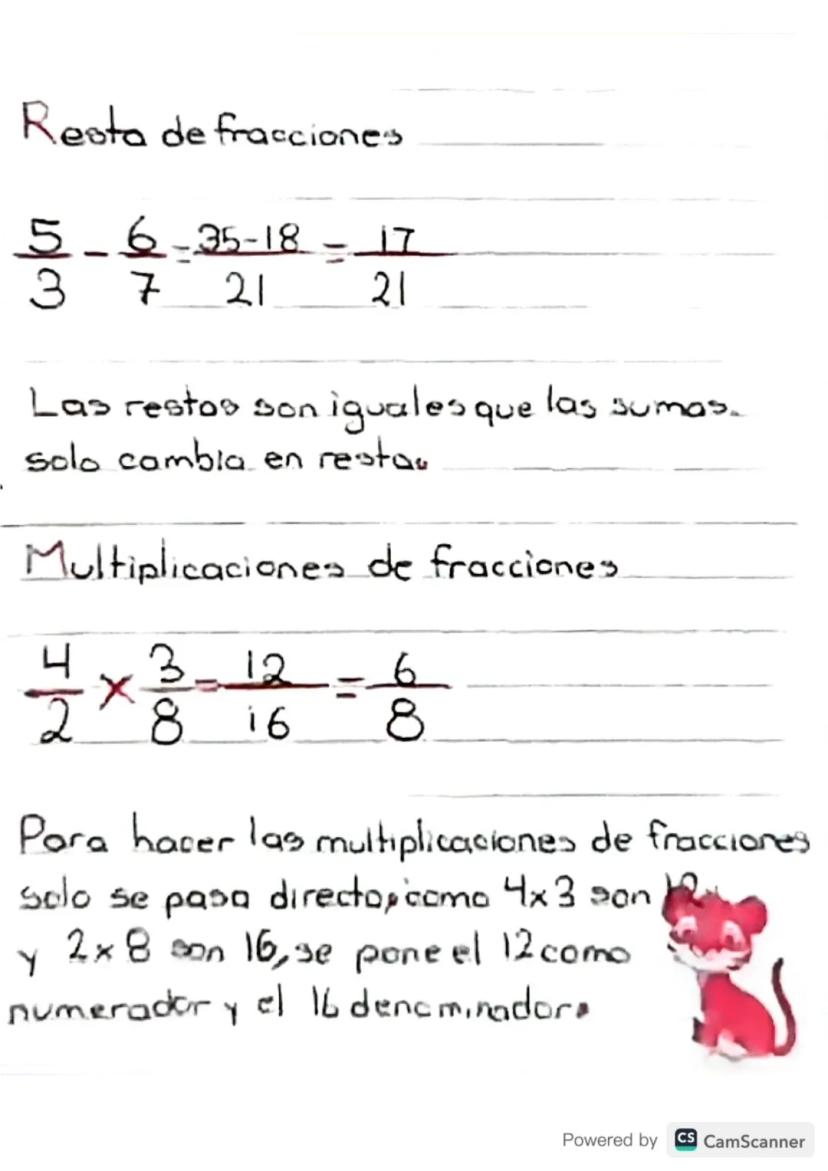 Resta de fracciones
5/3 - 6/7 = 35-18/21 = 17/21
Las restas son iguales que las sumas.
solo cambia en resta.
Multiplicaciones de fracciones
4/2 x 3/8 = 12/16 = 6/8
Para hacer las multiplicaciones de fracciones
solo se pasa directo, como 4x3 son
y 2x8 son 16, se pone el 12 como
numerador y el 16 denominador.
Powered by CS CamScanner